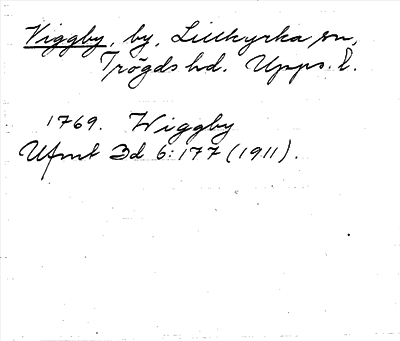 Viggby, by, Lillkyrka sn,
Trögds hd. Upps. l.
1769. Wiggby
Ufmt Bd 6:177 (1911).